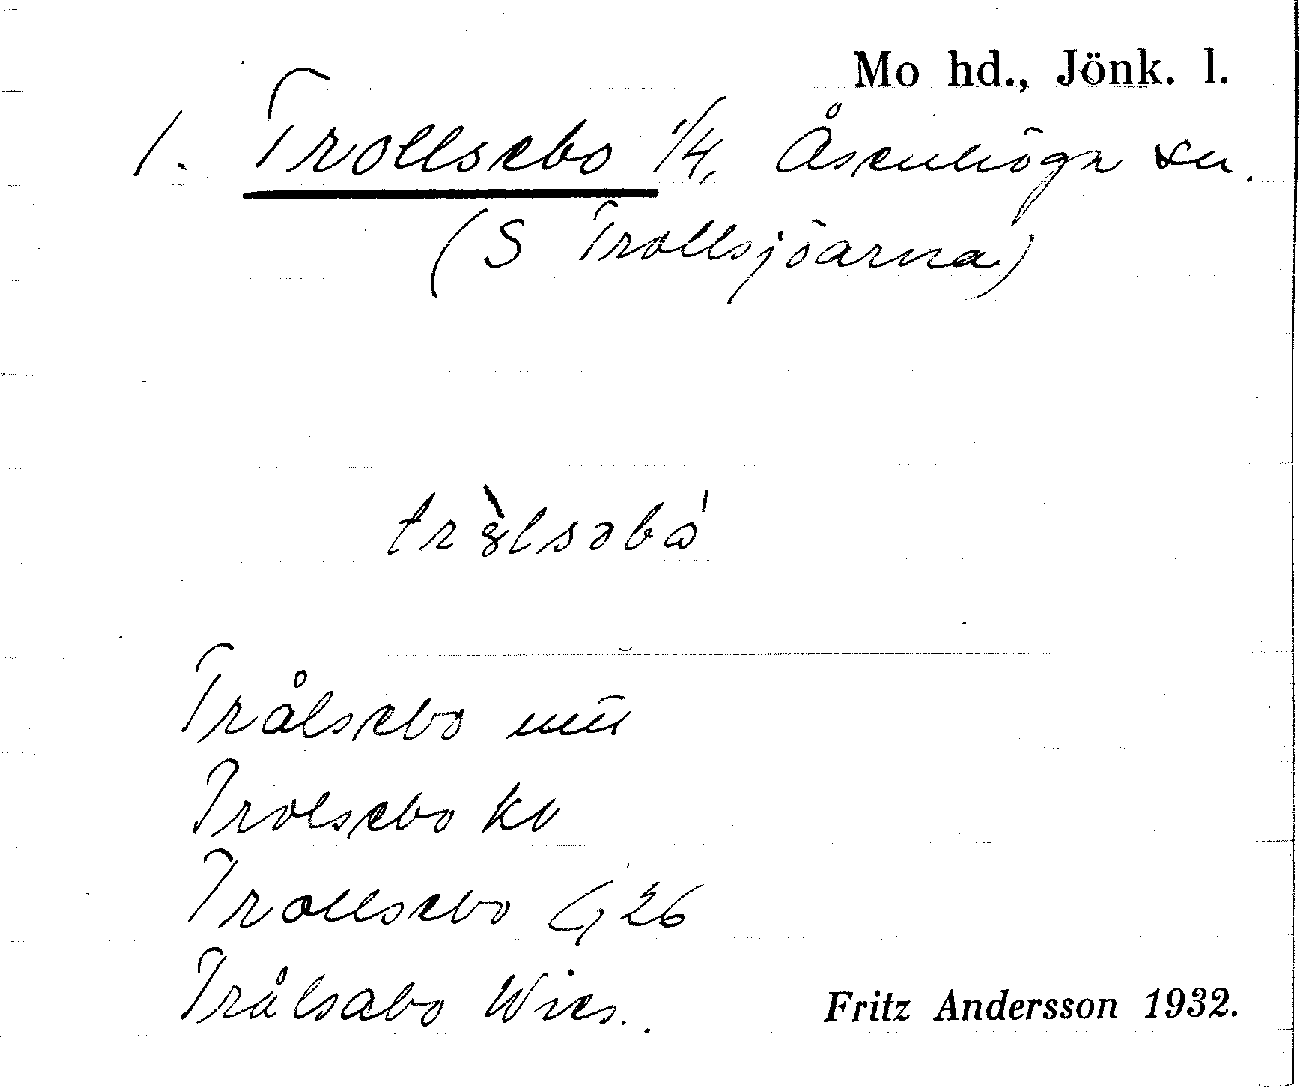 Mo hd., Jönk. l.
1. Trollsebo 1/4, Åsenhöga sn.
(S Trollsjöarna)
Trålsebo
Trolsebo kv
Trollsebo G 26
Trålsabo Wies.
Fritz Andersson 1932.